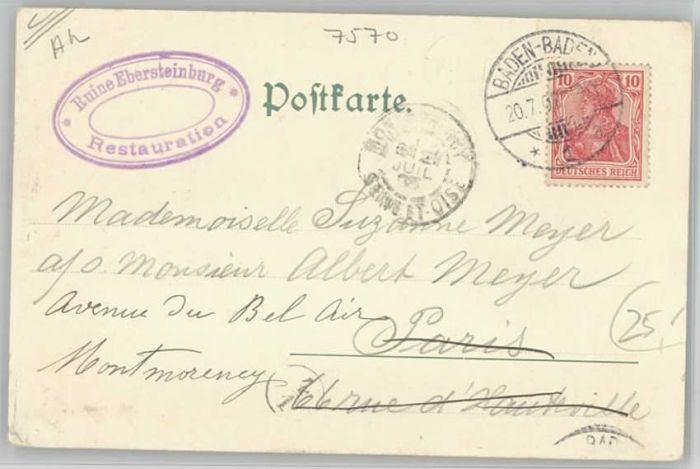 Ah
7570
Ruine Ebersteinburg
Restauration
Postkarte.
BADEN-BADEN
20.7.
10 10
DEUTSCHES REICH
JUIL
SEINE-ET-OISE
Mademoiselle Suzanne Meyer
a/s. Monsieur Albert Meyer
Avenue du Bel Air
Paris
25!
Montmorency
66 rue d'Hauteville
BAD